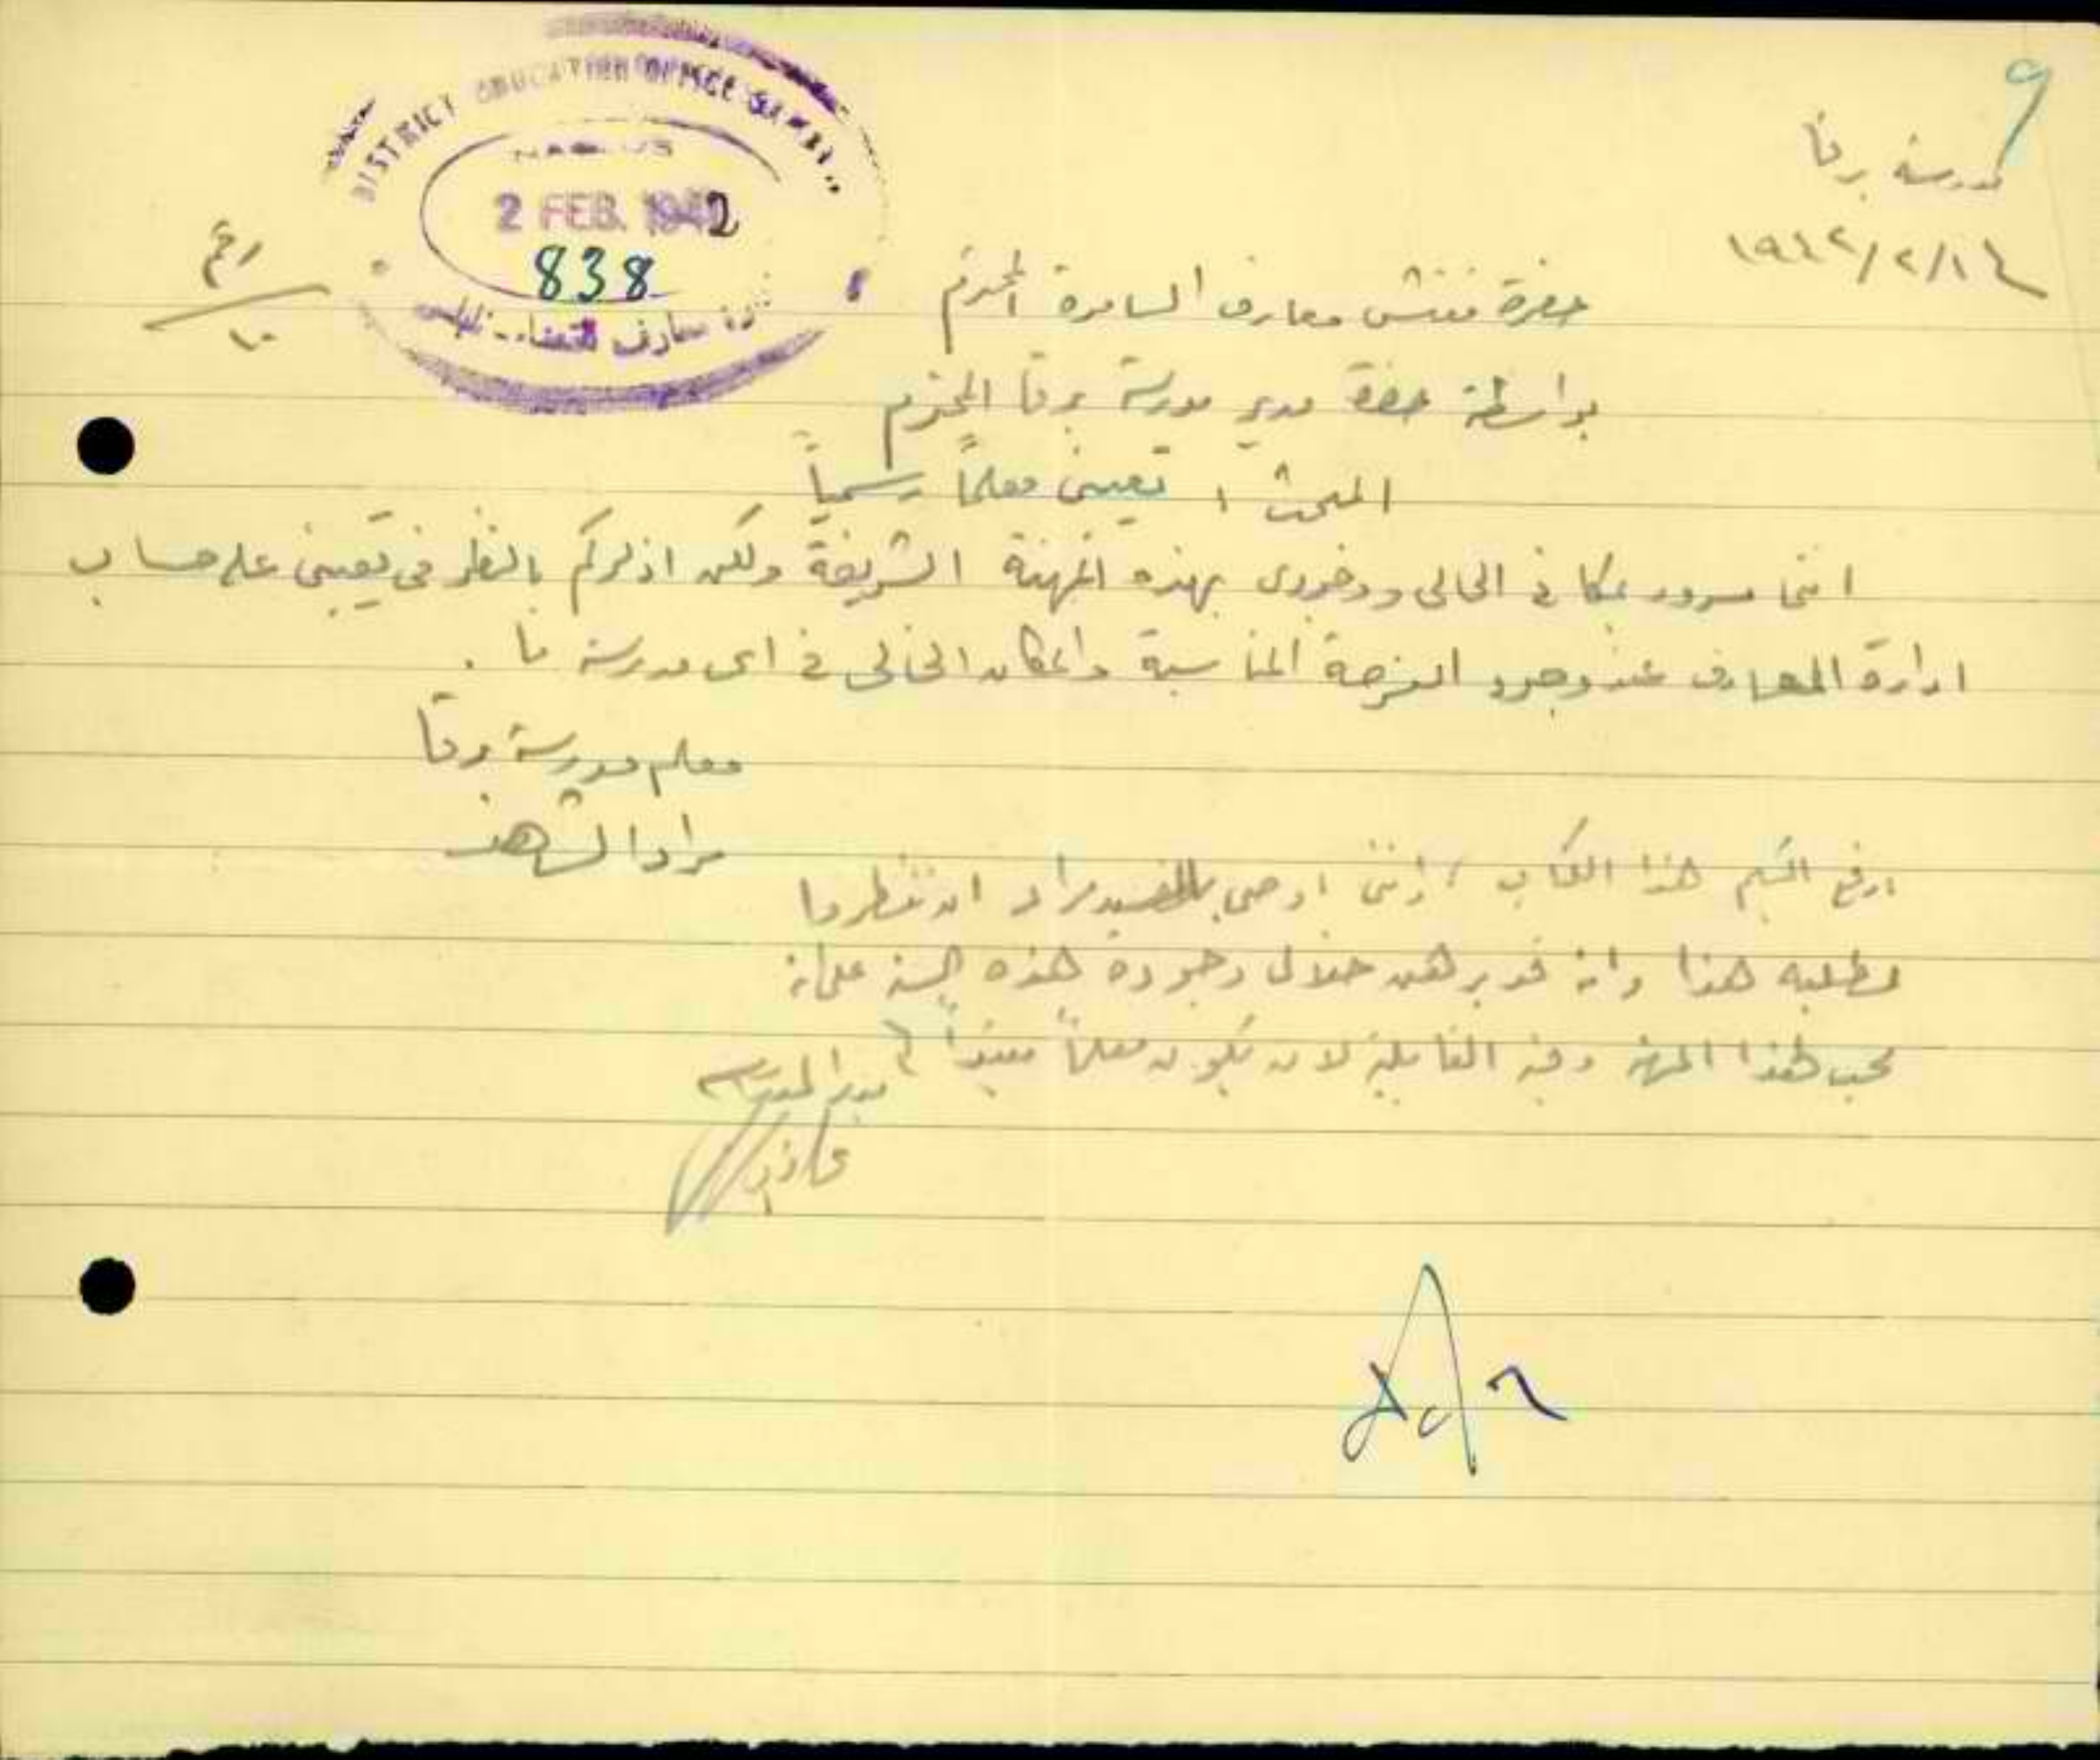 9
مدرسة برقا
١٩٤٢/٢/١٤
DISTRICT EDUCATION OFFICE SAMARIA
NABLUS
2 FEB. 1942
838
معارف نابلس
رقم
١٠
حضرة مفتش معارف السامرة المحترم
بواسطة حضرة مدير مدرسة برقا المحترم
المبحث : تعييني معلماً رسمياً
انني مسرور بمكاني الحالي ووجودي بهذه المهنة الشريفة ولكن اذكركم بالنظر في تعييني على حساب
ادارة المعارف عند وجود الفرصة المناسبة والمكان الخالي في اى مدرسة ما .
معلم مدرسة برقا
مراد
ارفع اليكم هذا الكتاب وانني اوصي بالسيد مراد ان تنظروا
بطلبه هذا وانه قد برهن خلال وجوده هذه السنة على انه
محب لهذا المهنه وفيه القابلية لان يكون معلماً مفيداً
مدير المدرسة